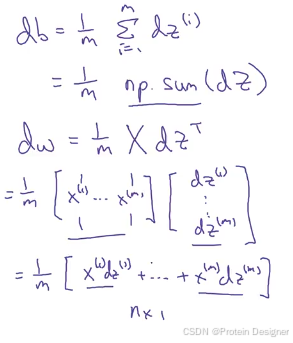 db = 1/m Σ_{i=1}^{m} dz^(i)
= 1/m np.sum(dZ)
dw = 1/m X dz^T
= 1/m [x^(1) ... x^(m)] [dz^(1) ⋮ dz^(m)]
= 1/m [x^(1)dz^(1) + ... + x^(m)dz^(m)]
n×1
CSDN @Protein Designer